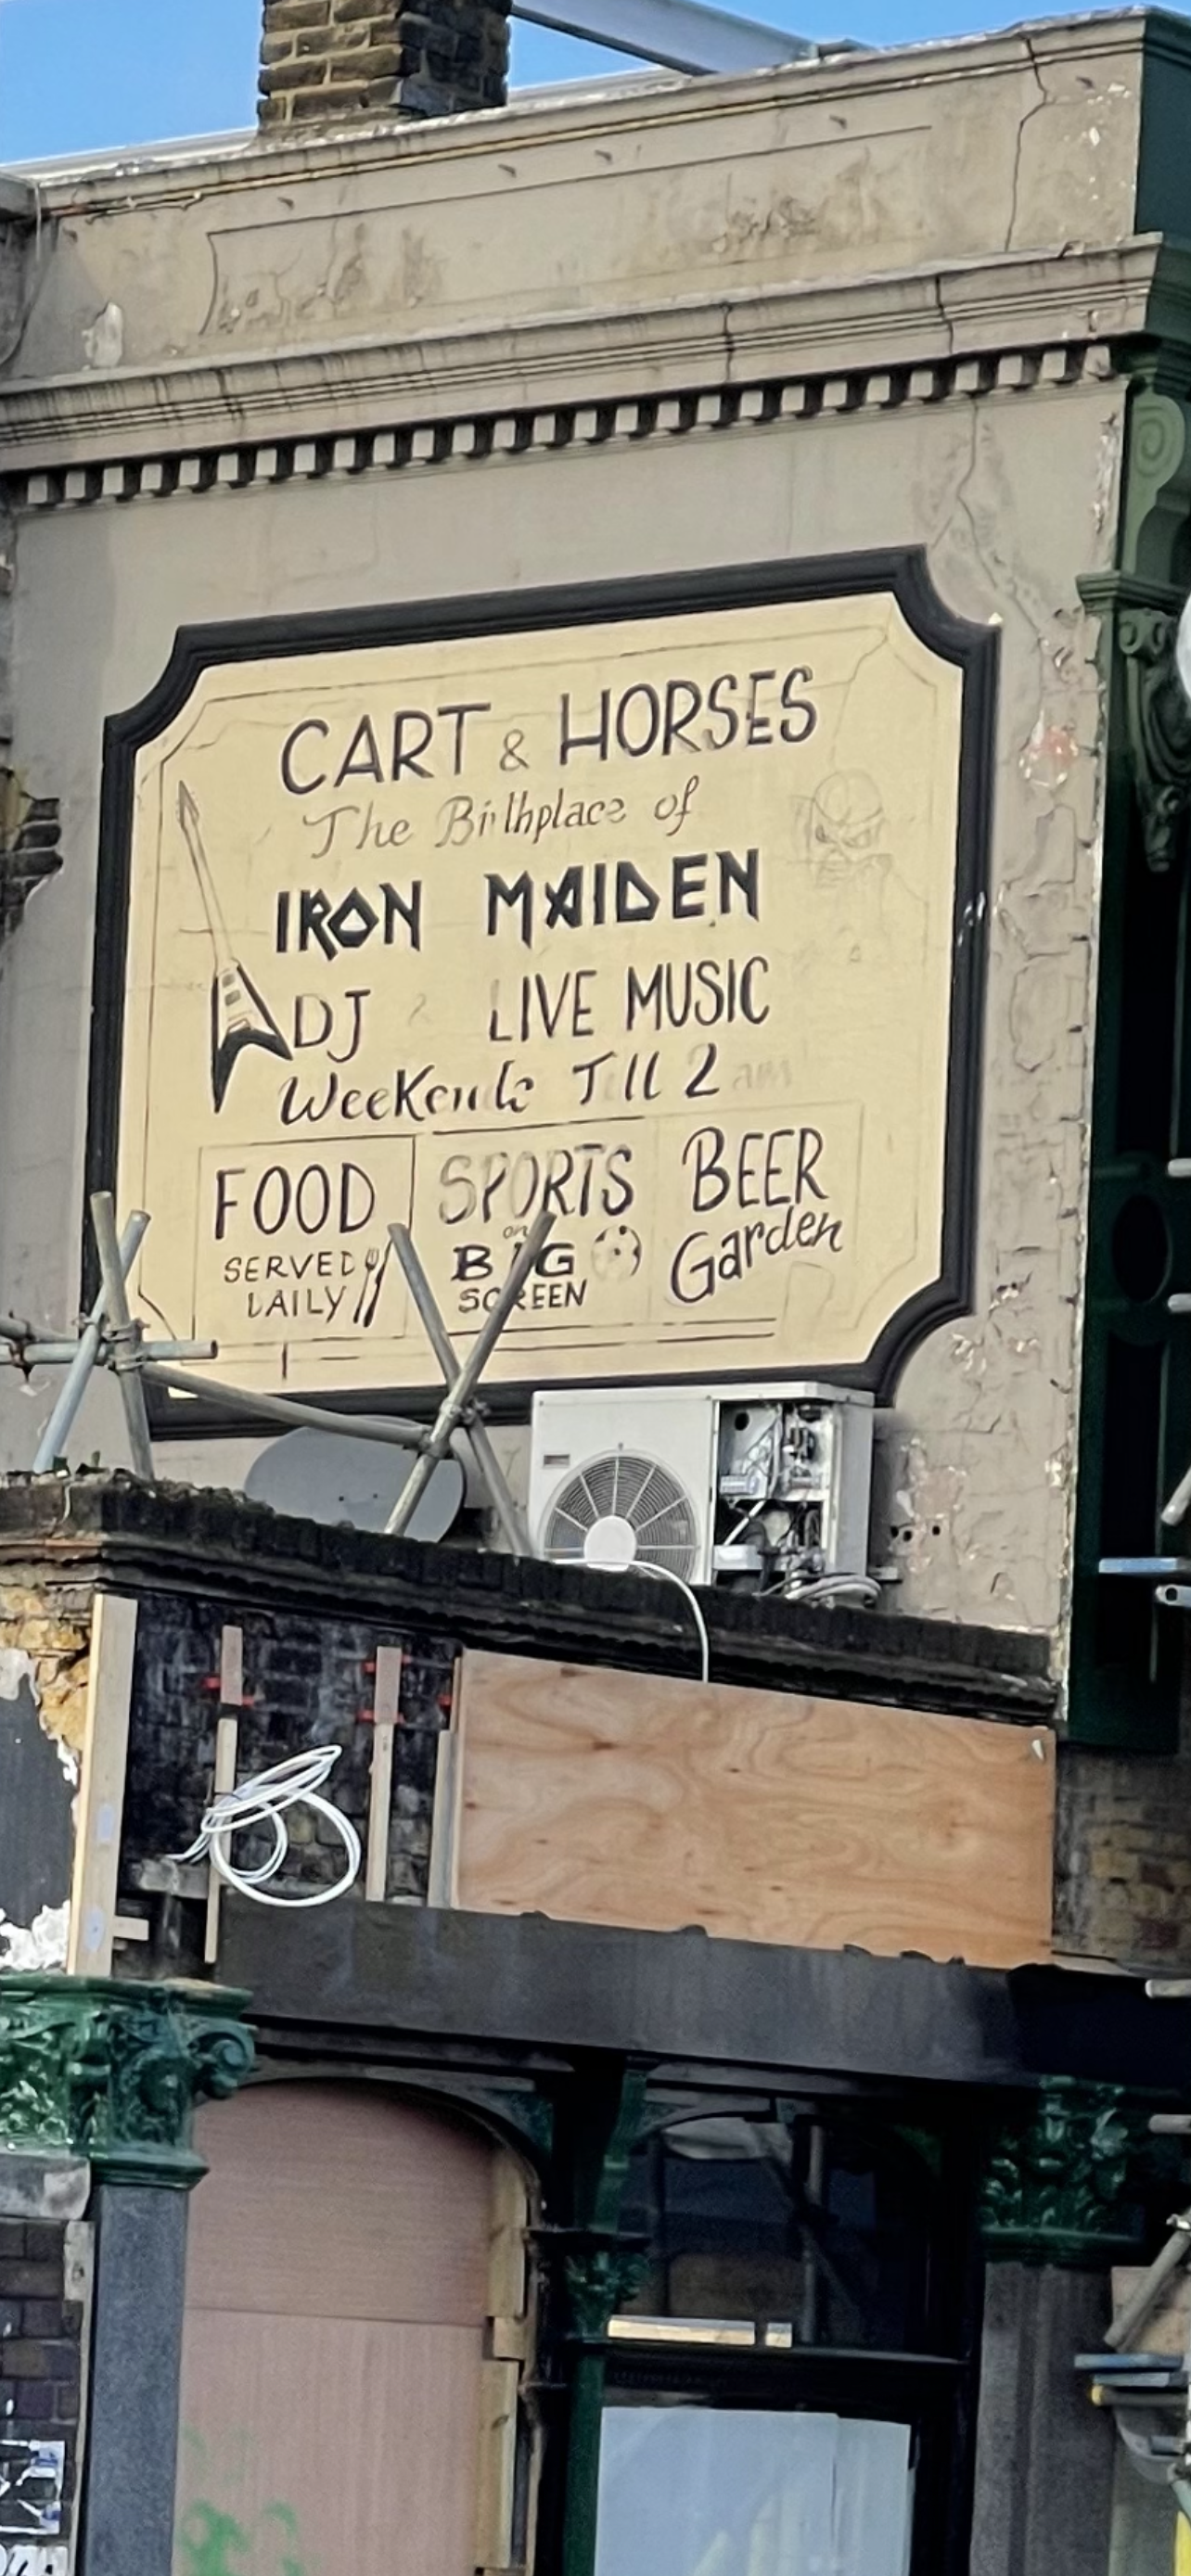 CART & HORSES
The Birthplace of
IRON MAIDEN
DJ & LIVE MUSIC
Weekends Till 2am
FOOD
SERVED
DAILY
SPORTS
on
BIG
SCREEN
BEER
Garden